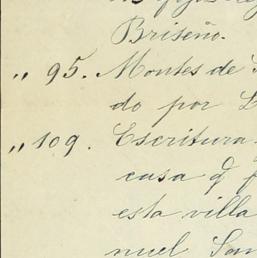 Briseño.
„ 95. Montes de
do por
„ 109. Escritura
casa q f
esta villa
nuel San